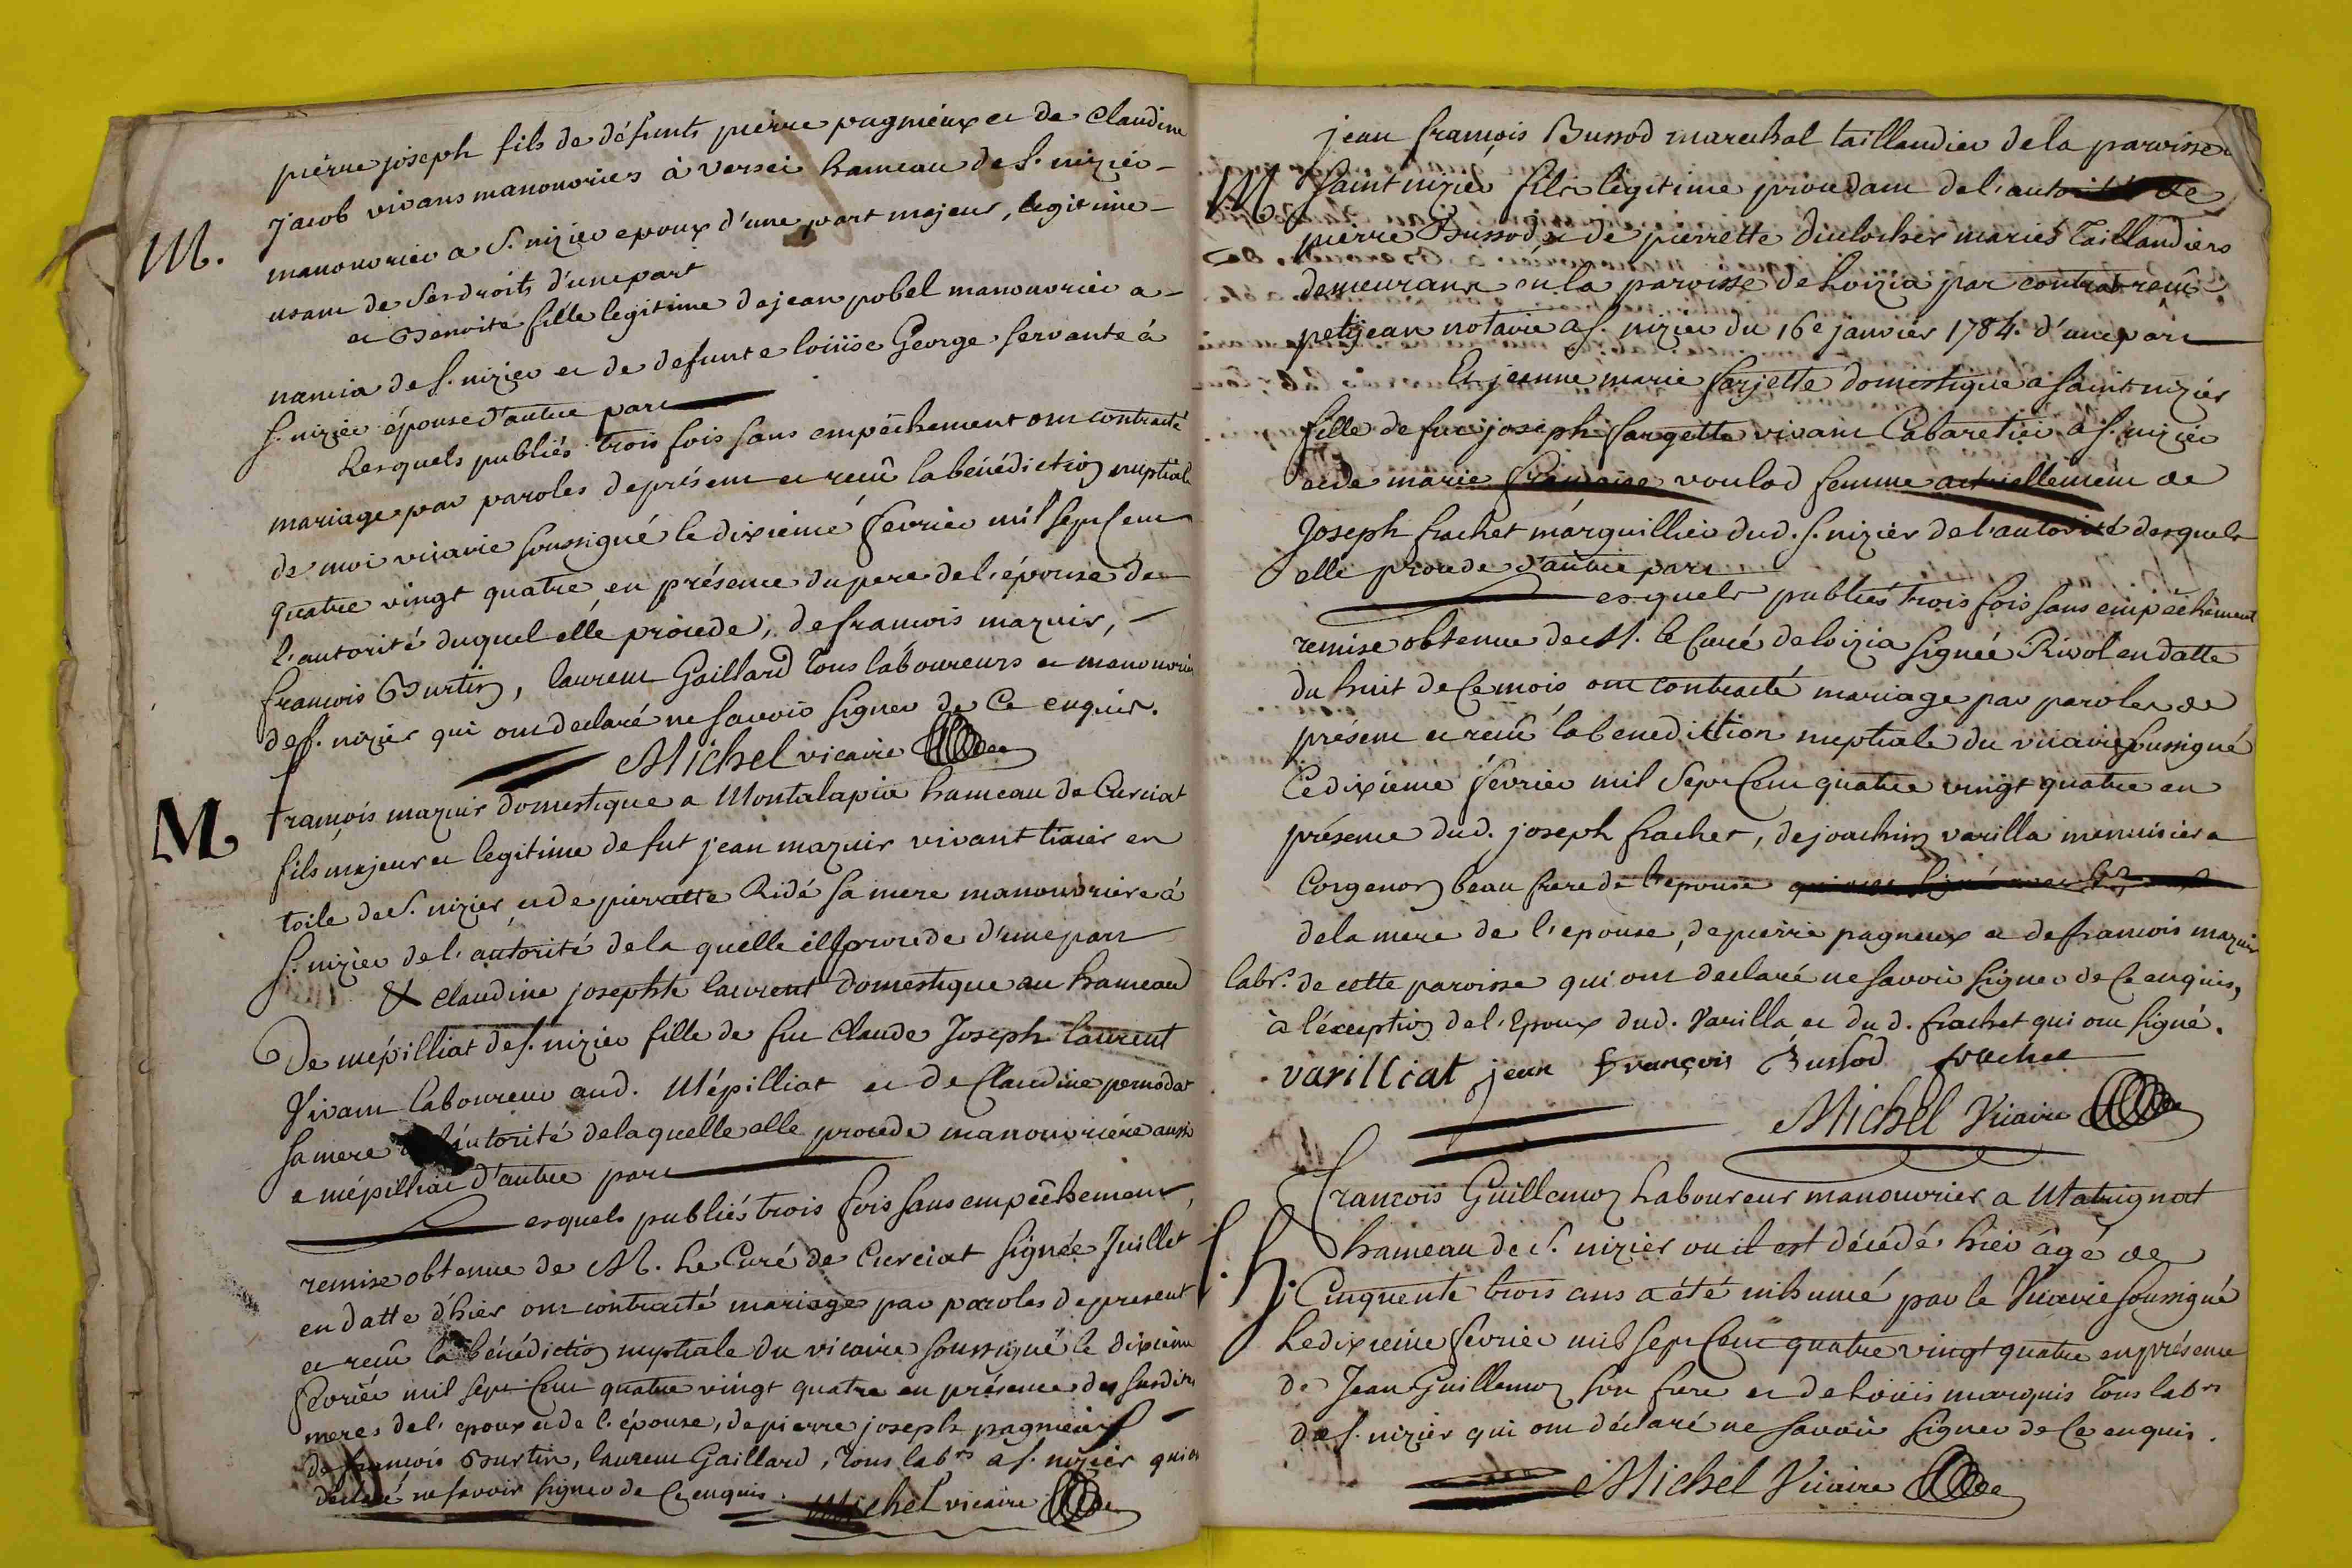 pierre joseph fils de défunts pierre pagnieux et de Claudine
M. jacob vivans manouvriers à Versei hameau de S. nizier
manouvrier a S. nizier epoux d'une part majeur, legitime
usant de ses droits d'une part
et Benoite fille legitime de jean pobel manouvrier a
nancia de S. nizier et de defunte loüise George servante à
S. nizier épouse d'autre part
Lesquels publiés trois fois sans empêchement ont contracté
mariage par paroles de présent et reçu la bénédiction nuptiale
de moi vicaire soussigné le dixieme fevrier mil sept cent
quatre vingt quatre en présence du pere de l'épouse de
l'autorité duquel elle procede, de francois mazuir,
francois Burtin, laurent Gaillard tous laboureurs et manouvriers
de S. nizier qui ont declaré ne savoir signer de ce enquis.
Michel vicaire
M françois mazuir domestique a Montalapia hameau de Curciat
fils majeur et legitime de fut jean mazuir vivant tixier en
toile de S. nizier et de pierrette Ridé sa mere manouvriere à
S. nizier de l'autorité de la quelle il procede d'une part
& claudine josephte laurent domestique au hameau
De mépilliat de S. nizier fille de feu Claude Joseph laurent
Vivant laboureur aud. Mépilliat et de Claudine pernodat
sa mere l'autorité de laquelle elle procede manouvriére aussi
a mépilliat d'autre part
Lesquels publiés trois fois sans empêchement,
remise obtenue de M. Le Curé de Curciat signée Juillet
en datte d'hier ont contracté mariage par paroles de present
et reçu la bénédiction nuptiale du vicaire soussigné le dixieme
fevrier mil sept cent quatre vingt quatre en présence des susdites
meres de l'epoux et de l'épouse, de pierre joseph pagnieux
de francois Burtin, laurent Gaillard, tous labrs a S. nizier qui ont
declaré ne savoir signer de ce enquis. Michel vicaire
jean françois Bussod marechal taillandier de la paroisse
M saint nizier fils legitime procedant de l'autorité de
pierre Bussod et de pierrette mariés taillandiers
demeurans en la paroisse de Loizia par contrat reçu
petitjean notaire a S. nizier du 16e janvier 1784 d'une part
Et jeanne marie farjette domestique a saint nizier
fille de feu joseph fargette vivant Cabaretier a S. nizier
et de marie françoise voulod femme actuellement de
Joseph frachet marguillier dud. S. nizier de l'autorité desquels
elle procede d'autre part
Lesquels publiés trois fois sans empêchement
remise obtenue de M. le Curé de loizia signée Rivol en datte
du huit de ce mois ont contracté mariage par paroles de
présent et reçu la benediction nuptiale du vicaire soussigné
Ce dixieme fevrier mil sept cent quatre vingt quatre en
présence dud. joseph frachet, de joachim varilla menuisier a
Corgenon beau frere de l'epouse
de la mere de l'epouse, de pierre pagneux et de francois mazuir
labrs. de cette paroisse qui ont declaré ne savoir signer de ce enquis,
à l'exception de l'Epoux dud. Varilla et du d. frachet qui ont signé.
varilliat jean françois Bussod frachet
Michel Vicaire
francois Guillemoz Laboureur manouvrier a Matrignat
S. hameau de S. nizier ou il est décédé hier âgé de
h. Cinquente trois ans a été inhumé par le Vicaire soussigné
Le dixieme fevrier mil sept Cent quatre vingt quatre en présence
de Jean Guillemoz son frere et de Loüis marquis tous labrs
de S. nizier qui ont déclaré ne savoir signer de ce enquis.
Michel Vicaire